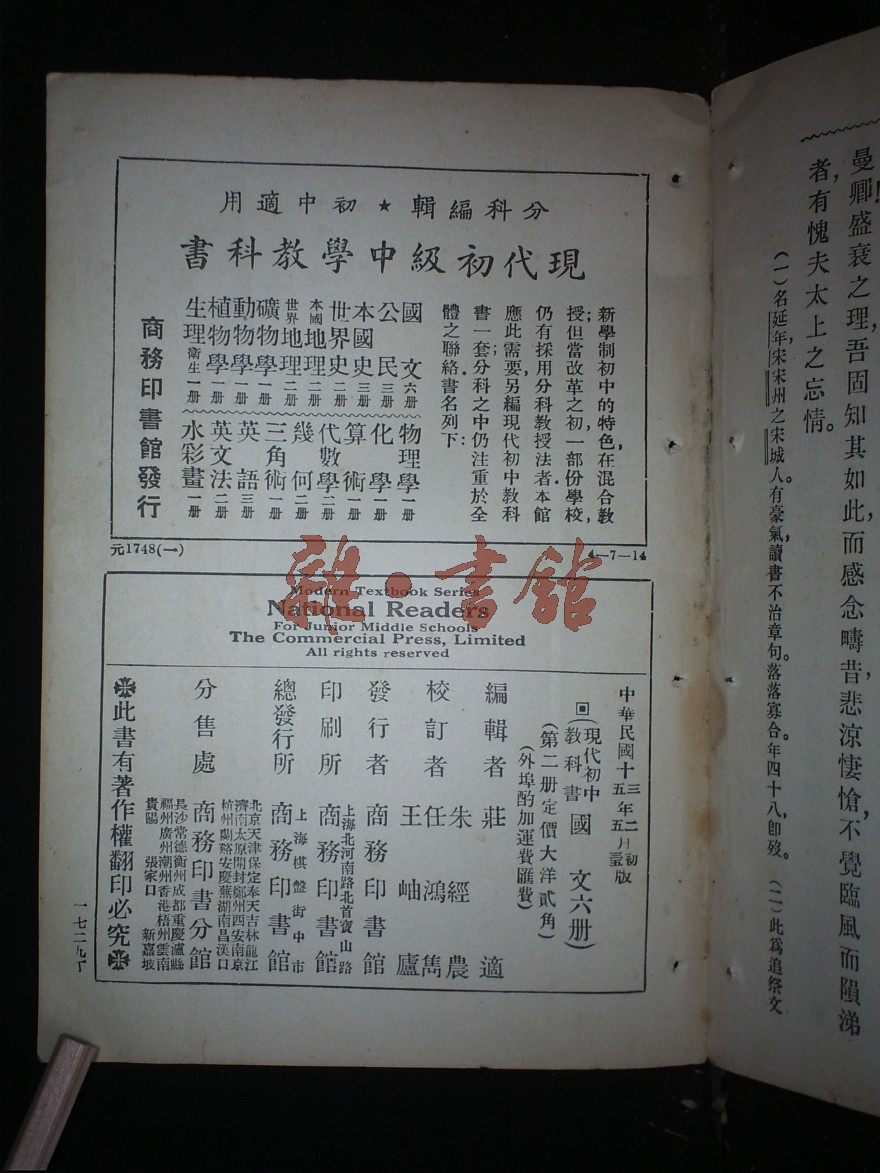 曼卿!盛衰之理,吾固知其如此,而感念疇昔,悲涼悽愴,不覺臨風而隕涕
者,有愧夫太上之忘情。
(一)名延年,宋宋州之宋城人。有豪氣,讀書不治章句。落落寡合。年四十八,卽歿。 (二)此爲追祭文
分科編輯★初中適用
現代初級中學教科書
新學制初中的特色,在混合教
授;但當改革之初,一部份學校,
仍有採用分科教授法者.本館
應此需要,另編現代初中教科
書一套;分科之中仍注重於全
體之聯絡.書名列下:
國文 六册
公民 三册
本國史 三册
世界史 二册
本國地理 二册
世界地理 二册
礦物學 一册
動物學 一册
植物學 一册
生理衛生 一册
物理學 一册
化學 一册
算術 一册
代數學 二册
幾何 二册
三角術 一册
英語 三册
英文法 二册
水彩畫 一册
商務印書館發行
元1748(一)
4—7—14
雜·書館
Modern Textbook Series
National Readers
For Junior Middle Schools
The Commercial Press, Limited
All rights reserved
中華民國十三年二月初版
十五年五月
(現代初中教科書) 國文六册
(第二册定價大洋貳角)
(外埠酌加運費匯費)
編輯者 莊適
校訂者 朱經農
任鴻雋
王岫廬
發行者 商務印書館
印刷所 上海北河南路北首寶山路
商務印書館
總發行所 上海棋盤街中市
商務印書館
分售處 商務印書分館
北京天津保定奉天吉林龍江
濟南太原開封鄭州西安南京
杭州蘭谿安慶蕪湖南昌漢口
長沙常德衡州成都重慶瀘縣
福州廣州潮州香港梧州雲南
貴陽 張家口 新嘉坡
此書有著作權翻印必究
一七二九丁